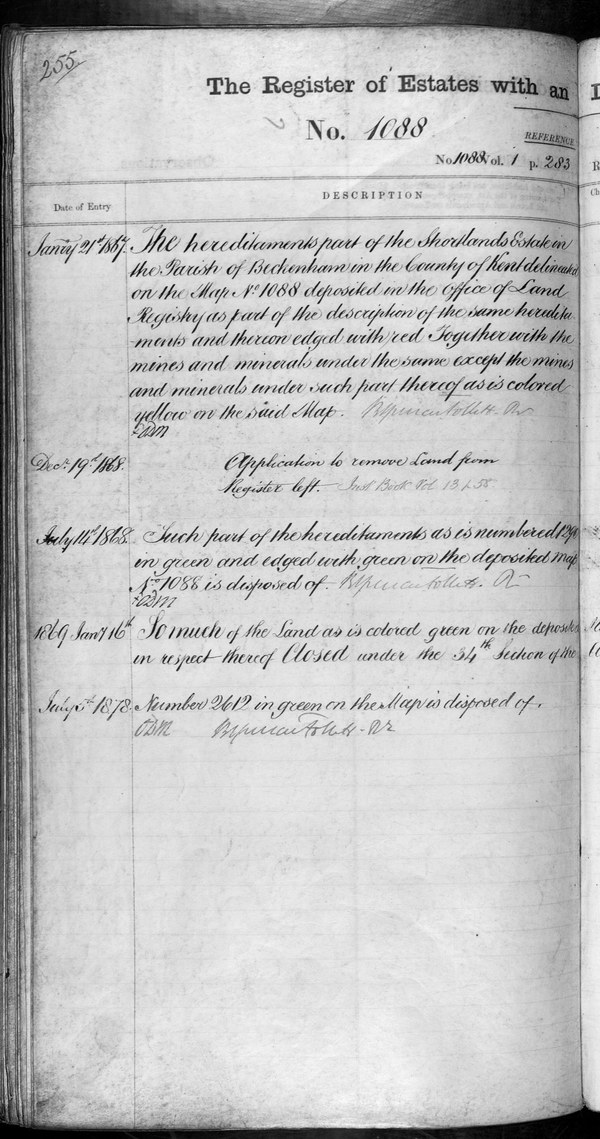 255
The Register of Estates with an I
No. 1088.
REFERENCE
No 1088. Vol. 1 p. 283
Date of Entry
DESCRIPTION
Janry 21st 1867. The hereditaments part of the Shortlands Estate in
the Parish of Beckenham in the County of Kent delineated
on the Map No. 1088 deposited in the Office of Land
Registry as part of the description of the same heredita
ments and thereon edged with red Together with the
mines and minerals under the same except the mines
and minerals under such part thereof as is colored
yellow on the said Map.
Decr. 19th 1868. Application to remove Land from
Register left. Inst Book Vol 13
July 14th 1868. Such part of the hereditaments as is numbered
in green and edged with green on the deposited Map
No. 1088 is disposed of.
1869 Jany 16th So much of the Land as is colored green on the deposited
in respect thereof Closed under the 34th Section of the
July 1878. Number 2612 in green on the Map is disposed of.